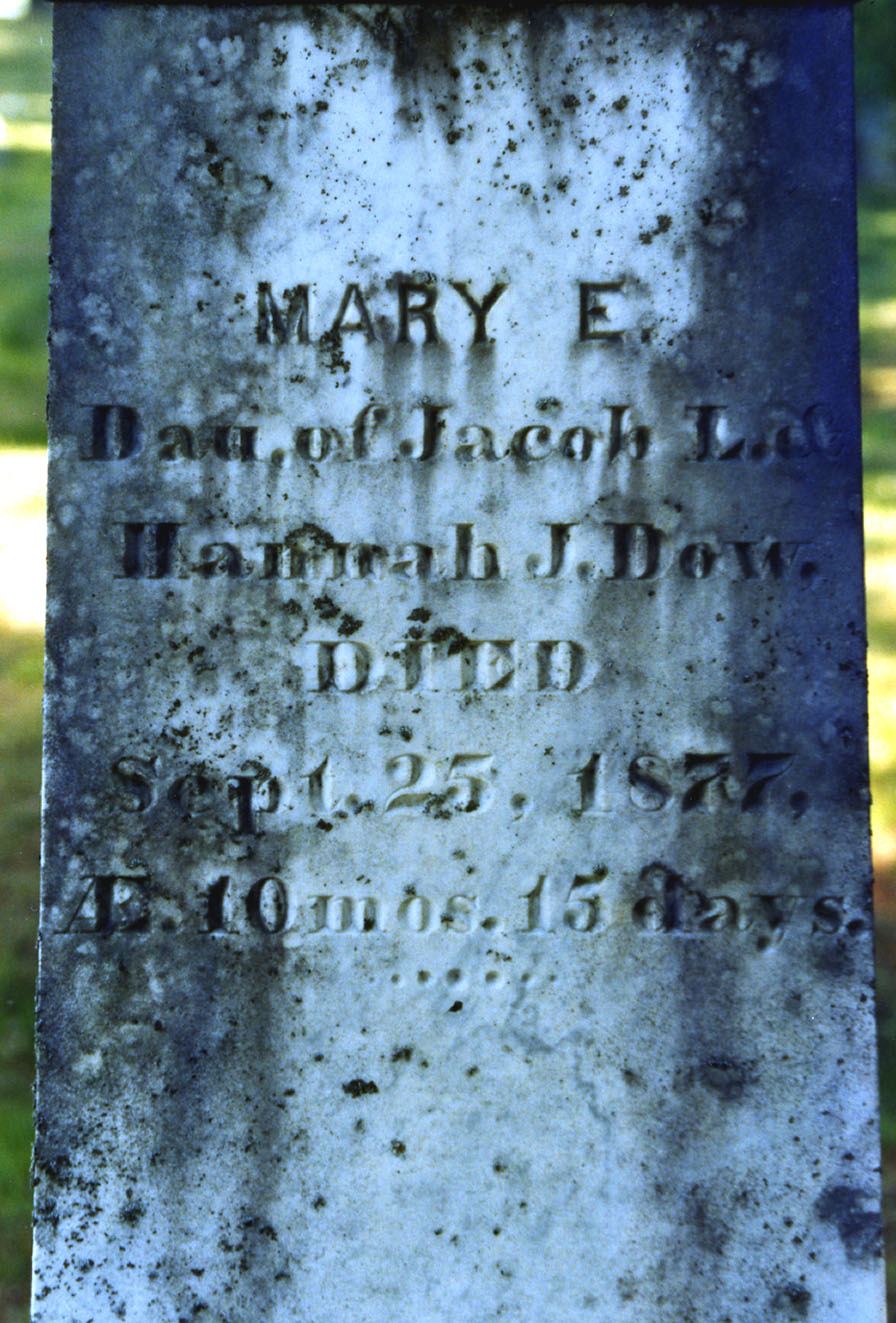 MARY E.
Dau. of Jacob L. &
Hannah J. Dow.
DIED
Sept. 25, 1877,
Æ. 10 mos. 15 days.